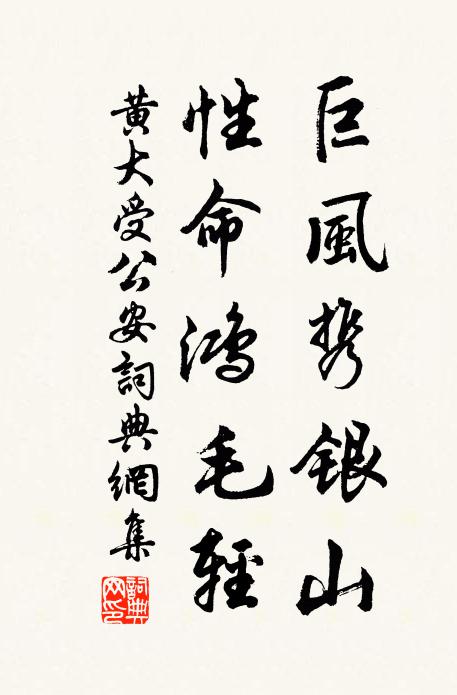 巨風携銀山
性命鴻毛輕
黃大受公安詞典網集
詞典网印